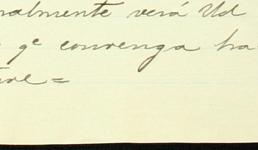 ralmente verá Ud
qe convenga ha